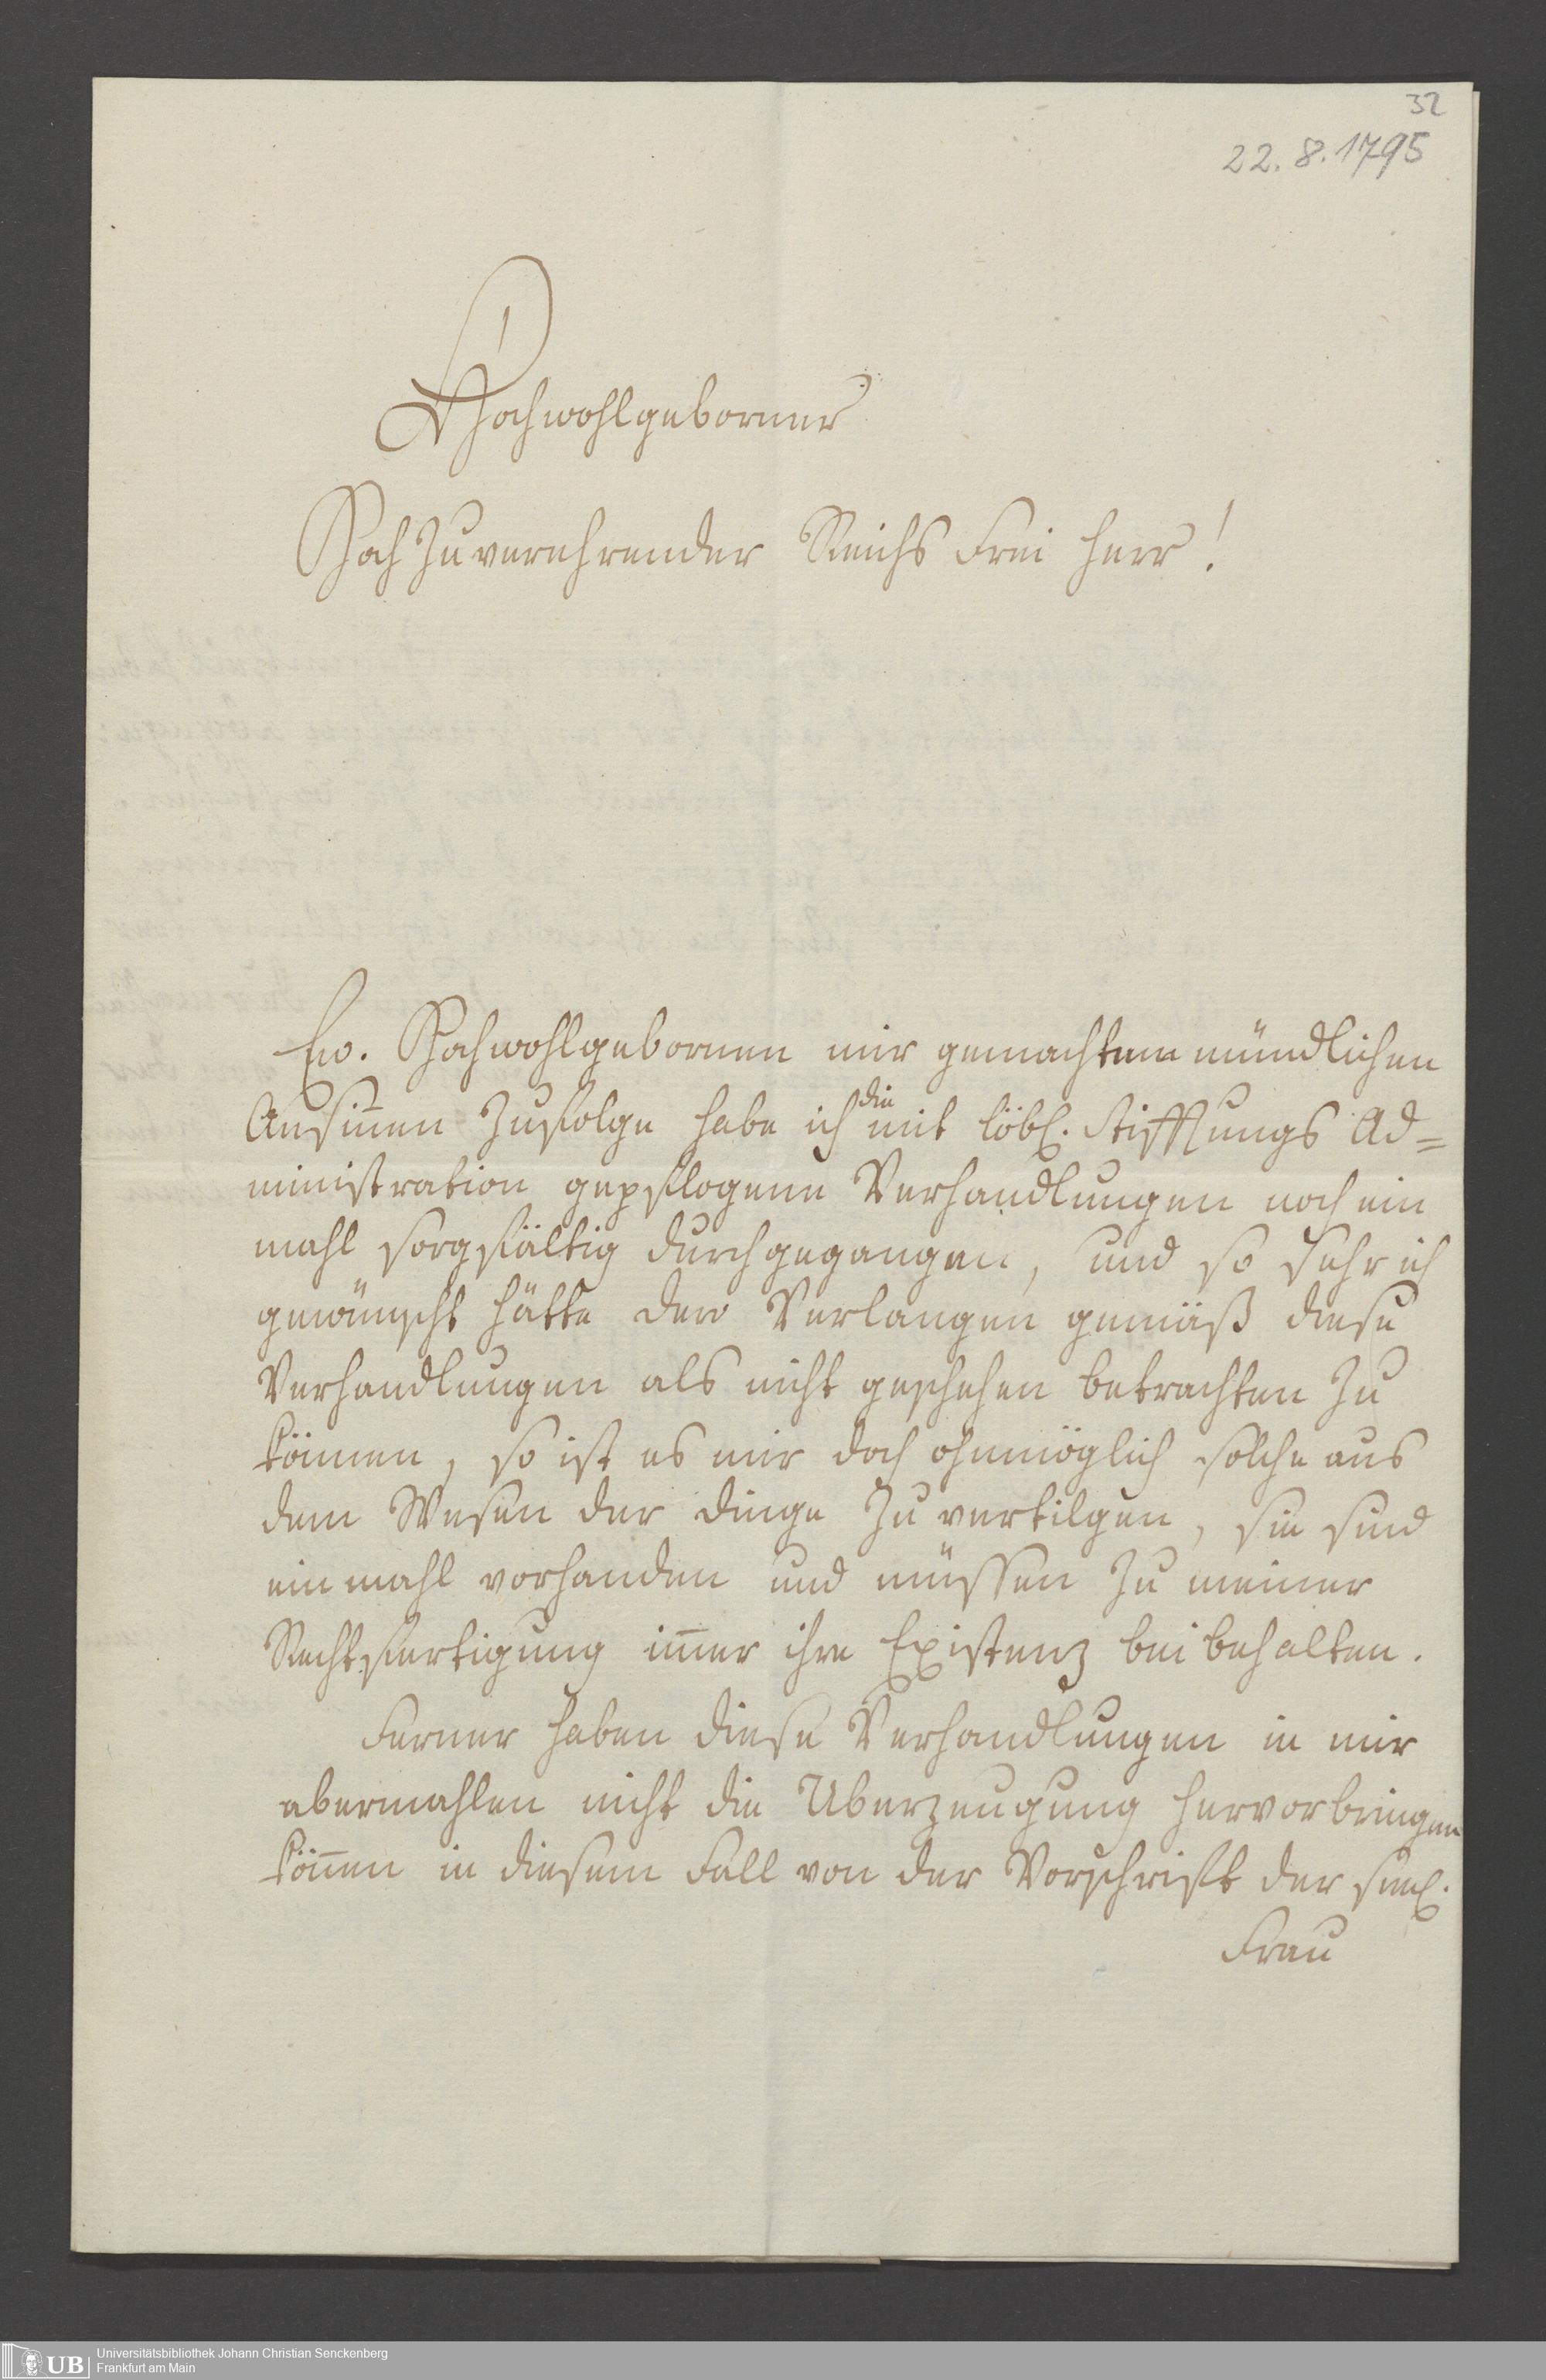 32
22. 8. 1795
Hochwohlgeborner
Hoch zuverehrender Reichs Frei Herr!
Ew. Hochwohlgebornen mir gemachtem mündlichen
Ansinnen zufolge habe ich die mit löbl. Stifftungs Ad=
ministration gepflogene Verhandlungen noch ein
mahl sorgfältig durchgegangen, und so sehr ich
gewünscht hätte dero Verlangen gemäß diese
Verhandlungen als nicht geschehen betrachten zu
können, so ist es mir doch ohnmöglich solche aus
dem Wesen der Dinge zu vertilgen, sie sind
einmahl vorhanden und müssen zu meiner
Rechtfertigung im̅er ihre Existenz beibehalten.
Ferner haben diese Verhandlungen in mir
abermahlen nicht die Uberzeugung hervorbringen
kön̅en in diesem Fall von der Vorschrift der seel.
Frau
UB
Universitätsbibliothek Johann Christian Senckenberg
Frankfurt am Main